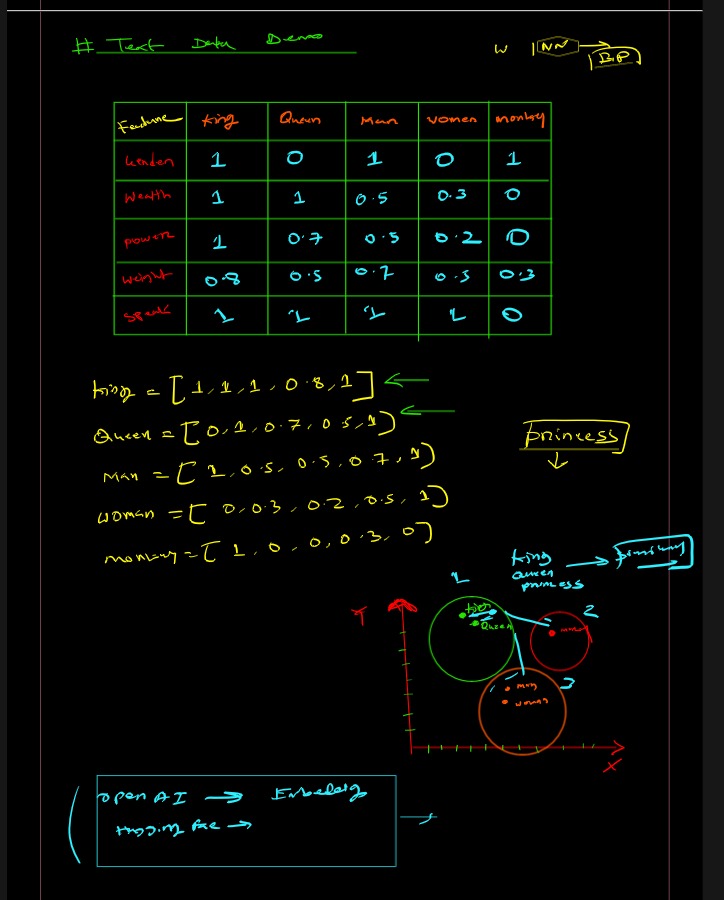 # Text Data Demo
W NN → BP
Feature King Queen Man women monkey
Gender 1 0 1 0 1
Wealth 1 1 0.5 0.3 0
power 1 0.7 0.5 0.2 0
weight 0.8 0.5 0.7 0.5 0.3
speak 1 1 1 1 0
King = [1, 1, 1, 0.8, 1] ←
Queen = [0, 1, 0.7, 0.5, 1] ←
Man = [1, 0.5, 0.5, 0.7, 1]
woman = [0, 0.3, 0.2, 0.5, 1]
monkey = [1, 0, 0, 0.3, 0]
princess
↓
King
Queen →
princess
1
2
3
King
Queen
man
woman
Y
X
open AI →
Hugging Face →